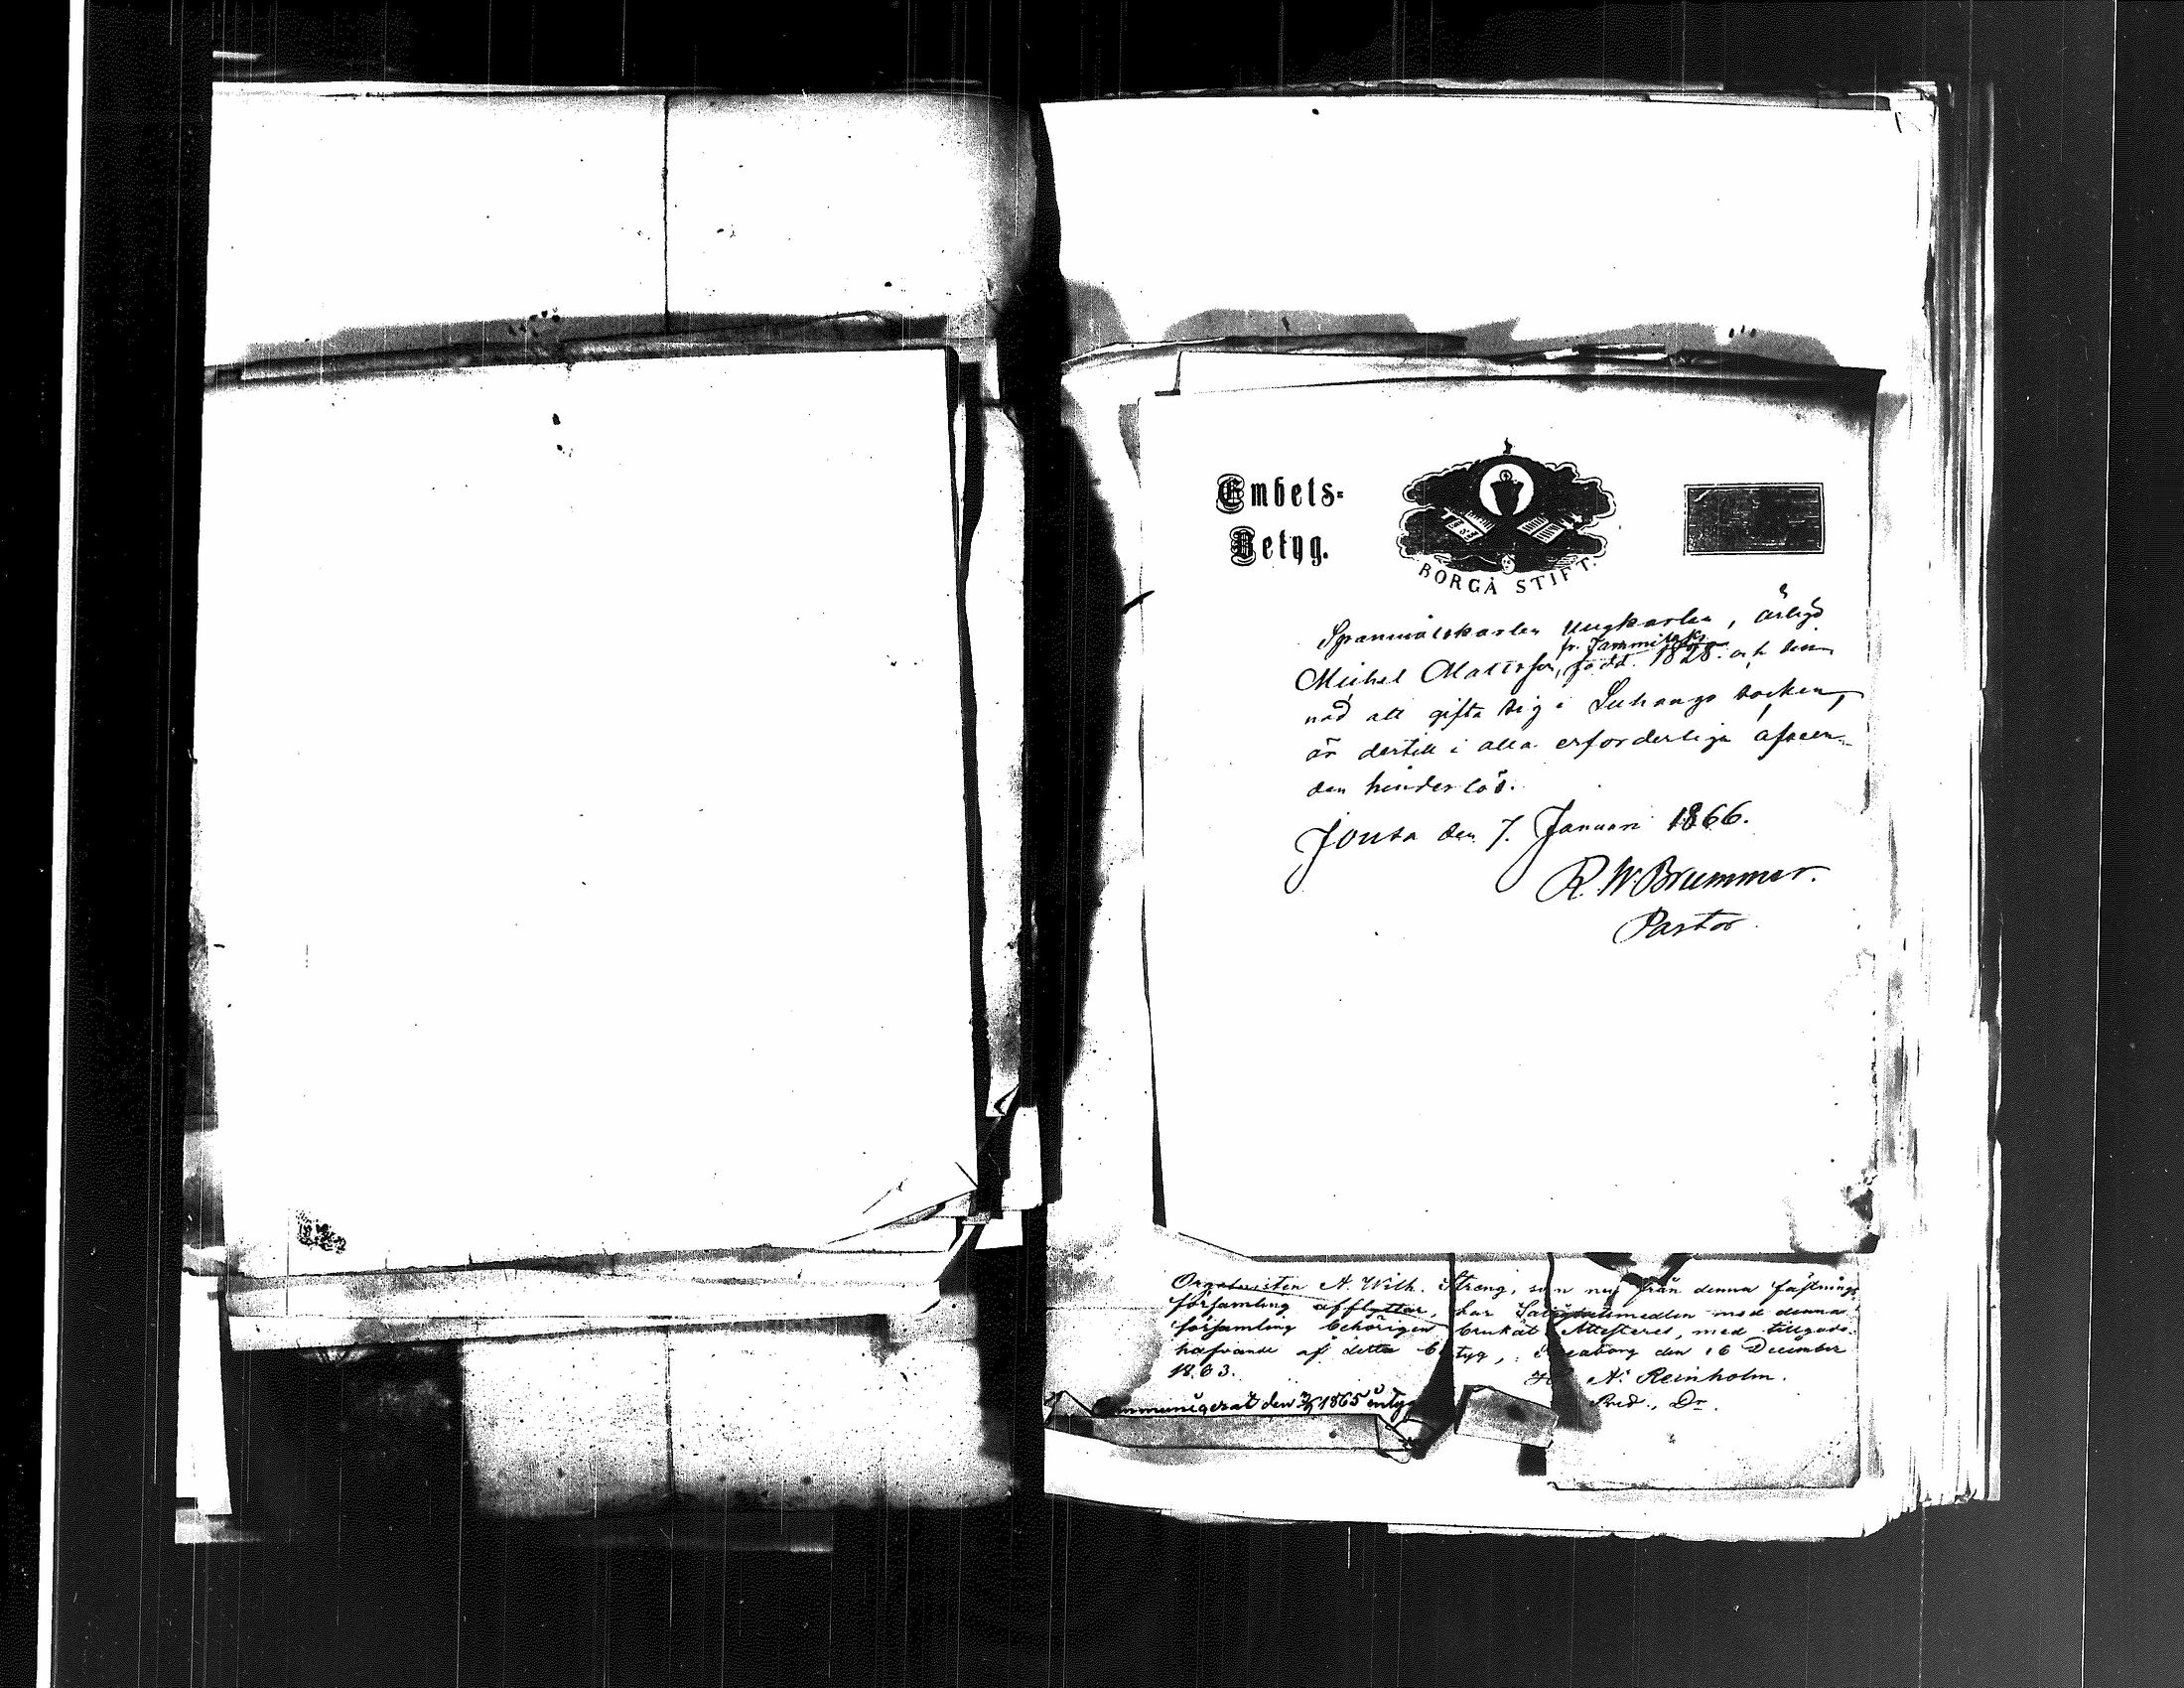 Embets-
Betyg.
BORGÅ STIFT.
Spanmålskarlen Ungkarlen, ärlige
fr. Tammijoki
Michel Matsson, född 1828. och sin-
nad att gifta sig i Luhango socken,
är dertill i alla erforderliga afseen-
den hinderlös.
Joutsa den 7. Januari 1866.
R. W. Brummer.
Pastor
Organisten A. Wilh. Streng, som nu från denna fästnings
församling afflyttar, har Salighetsmedlen med denna
församling behörigen brukat Attesteres, med tillgodo-
hafvande af detta betyg, Sveaborg den 16 December
1863.
A. Reinholm.
Pred., Dr.
Communicerat den 1865 intyg